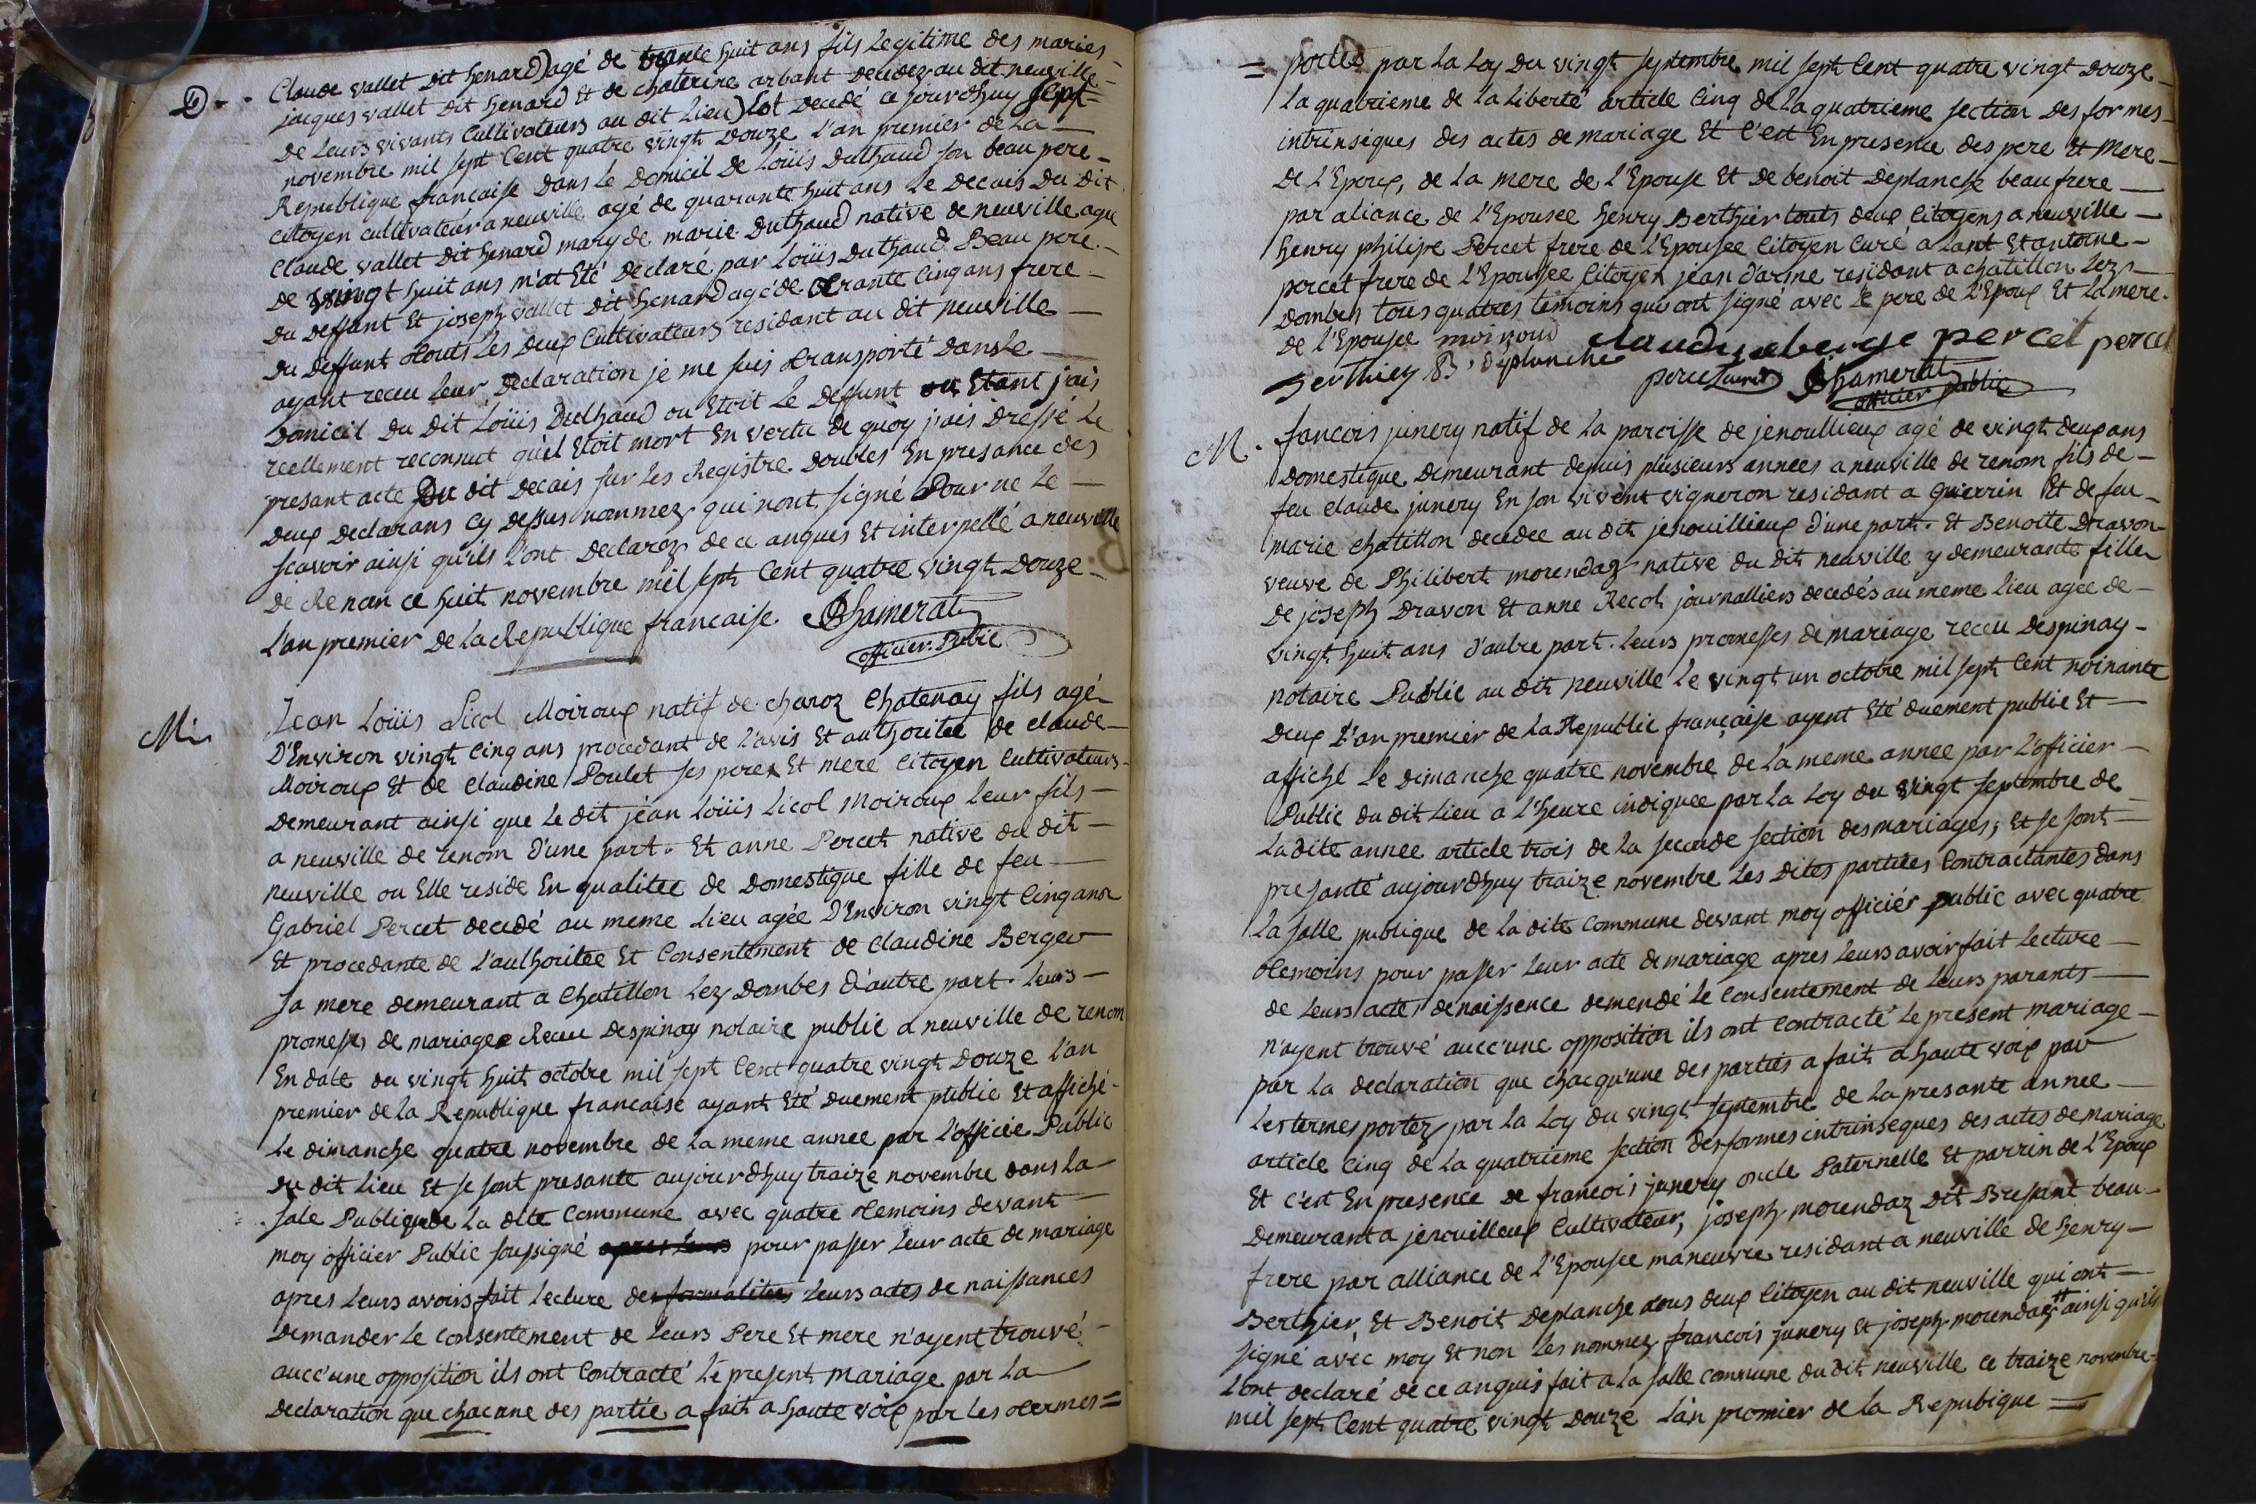 D. Claude vallet dit henard) agé de trante huit ans fils legitime des maries
jacques vallet dit henard Et de chaterine arbant decedez au dit neuville
De Leurs vivants Cultivateurs au dit Lieu) Est decedé ce jourdhuy sept
novembre mil sept Cent quatre vingt Douze L'an premier de La
Republique francaise Dans Le Domicil de Loüis Duthaud son beau pere
Citoyen cultivateur a neuville agé de quarante huit ans Le Decais Du Dit
Claude vallet dit henard mary de marie Duthaud native de neuville agee
de vingt huit ans m'at Eté Declaré par Loüis Duthaud Beau pere
Du deffunt Et joseph vallet dit henard agé de trante Cinq ans frere
Du deffunt touts Les Deux Cultivateurs residant au dit neuville
ayant receu Leur Declaration je me suis transporté Dans Le
Domicil Du Dit Loüis Duthaud ou Etoit Le deffunt ou Etant j'ais
reellement reconnut qu'il Etoit mort En vertu de quoy j'ais Dressé Le
presant acte Du dit Decais sur Les Registre Doubles En presance Des
Deux Declarans Cy Dessus nommez qui nont signé Pour ne Le
scavoir ainsi qu'ils L'ont Declarez de ce anquis Et interpellé a neuville
De Renon ce huit novembre mil sept Cent quatre vingt Douze
L'an premier de La Republique francaise Chamerat
officier Public
M. Jean Loüis Licol Moiroux natif de charoz Chatenay fils agé
D'Environ vingt Cinq ans procedant de L'avis Et authoritee de claude
Moiroux Et de Claudine Poulet ses peres Et mere Citoyen Cultivateurs
Demeurant ainsi que Le dit jean Loüis Licol Moiroux Leur fils
a neuville de renom D'une part. Et anne Percet native du dit
neuville ou Elle reside En qualitee de Domestique fille de feu
Gabriel Percet decedé au meme Lieu agée D'Environ vingt Cinq ans
Et procedante de L'authoritee Et Consentement de Claudine Berger
sa mere demeurant a Chatillon Lez Dombes D'autre part. Leurs
promesses de mariage Receu Despinay notaire public a neuville de renom
En date du vingt huit octobre mil sept Cent quatre vingt Douze L'an
premier de La Republique francaise ayant Eté Duement public Et affiché
Le dimanche quatre novembre de La meme annee par L'officie Public
Du dit Lieu Et se sont presante aujourdhuy traize novembre dans La
sale Publique de La dite Commune avec quatre temoins devant
moy officier Public soussigné apres Leurs pour passer Leur acte de mariage
apres Leurs avoirs fait Lecture des formalitees Leurs actes de naissances
Demander Le consentement de Leurs Pere Et mere n'ayent trouvé
aucc'une opposition ils ont Contracté Le present mariage par La
Declaration que chacune des partie a fait a haute voix par Les termes =
= portes par La Loy Du vingt septembre mil sept Cent quatre vingt Douze
La quatrieme de La Liberté article Cinq de La quatrieme section Des formes
intrinseques des actes de mariage Et C'est En presence des pere Et Mere
De L'Epoux, de La Mere de L'Epouse Et De benoit Deplanche beau frere
par aliance de L'Epousee henry Berthier touts deux Citoyens a neuville
henry philipe Percet frere de L'Epousee Citoyen Curé a Lant Et antoine
percet frere de L'Epousee Citoyen jean d'arme residant a chatillon Lez
Dombes tous quatres temoins qui ont signé avec Le pere de L'Epoux Et La mere
de L'Epousee moiroud claudine berge percet percet
Berthier B. deplanche percet Chamerat
officier public
M. francois junery natif de La paroisse de jenoullieux agé de vingt deux ans
Domestique Demeurant depuis plusieurs annees a neuville de renom fils de
feu claude junery En son vivent vigneron residant a guerrin Et de feu
marie chatillon decedee au dit jenouillieux d'une part. Et Benoite Dravon
veuve de Philibert morendaz native du dit neuville y demeurante fille
De joseph Dravon Et anne Recot journalliers decedés au meme Lieu agee de
vingt huit ans d'autre part. Leurs promesses de mariage receu Despinay
notaire Public au dit neuville Le vingt un octobre mil sept Cent noinante
Deux L'an premier de La Republic française ayent Eté duement public Et
affiché Le Dimanche quatre novembre de La meme annee par L'officier
Public du dit Lieu a L'heure indiquee par La Loy du vingt septembre de
La dite annee article trois de La seconde section des mariages; Et se sont
presanté aujourdhuy traize novembre Les Dites partiees Contractantes dans
La salle publique de La dite Commune devant moy officiér public avec quatre
temoins pour passer Leur acte de mariage apres Leurs avoir fait Lecture
de Leurs actes de naissence demendé Le Consentement de Leurs parants
n'ayent trouvé aucc'une opposition ils ont Contracté Le present mariage
par La declaration que chacqu'une des parties a fait a haute voix par
Les termes portez par La Loy du vingt septembre de La presante annee
article Cinq de La quatrieme section Des formes intrinseques des actes de mariage
Et c'est En presence de francois junery oncle Paternelle Et parrin de L'Epoux
Demeurant a jenouilleux Cultivateur, joseph morendaz Dit Bresant beau
frere par alliance de L'Epousee maneuvre residant a neuville de henry
Berthier, Et Benoit Deplanche tous deux Citoyen au dit neuville qui ont
signé avec moy Et non Les nommez francois junery Et joseph morendaz # ainsi qu'ils
L'ont declaré de ce anquis fait a La salle commune du Dit neuville ce traize novembre
mil sept Cent quatre vingt Douze L'an promier de La Repubique =